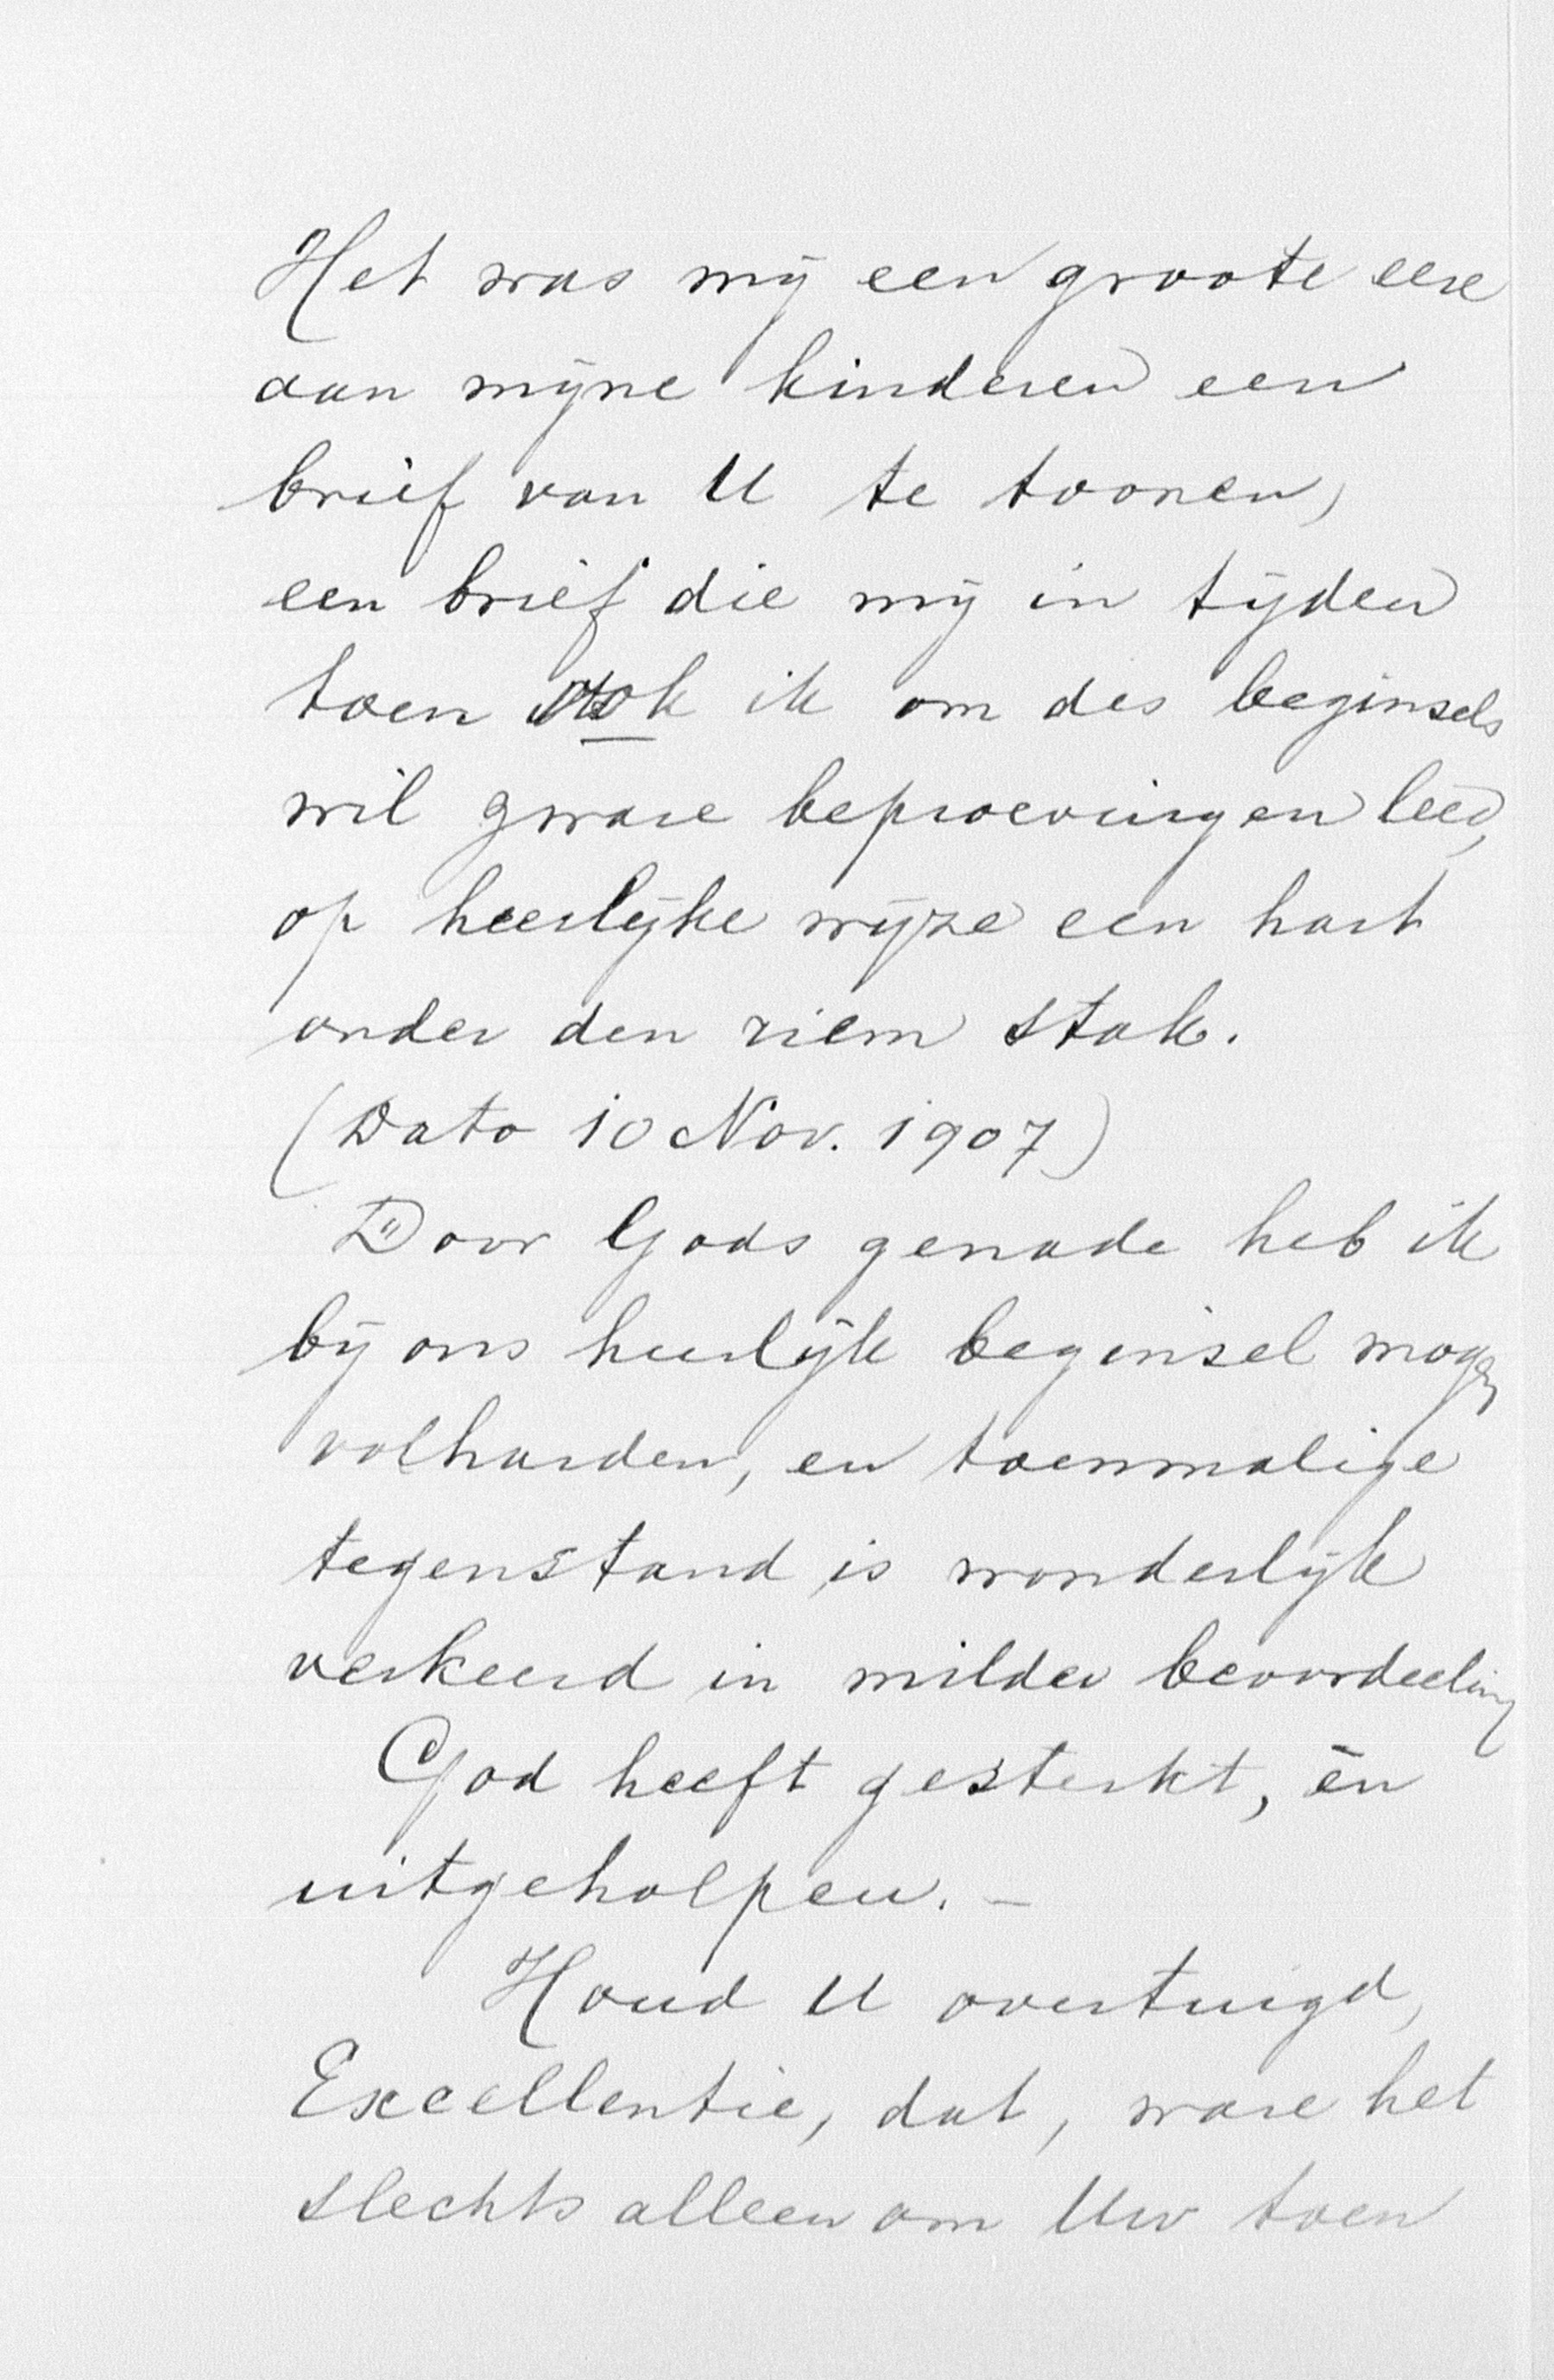 Het was mij een groote eere
aan mijne kinderen een
brief van U te toonen,
een brief die mij in tijden
toen ook ik om des beginsels
wil zware beproevingen leed,
op heerlijke wijze een hart
onder den riem stak.
(Dato 10 Nov. 1907)
Door Gods genade heb ik
bij ons heerlijk beginsel mogen
volharden, en toenmalige
tegenstand is wonderlijk
verkeerd in milder beoordeeling
God heeft gesterkt, èn
uitgeholpen. –
Houd U overtuigd,
Excellentie, dat, ware het
slechts alleen om Uw toen